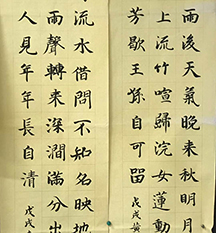 雨後天氣晚来秋明月
上流竹喧歸浣女蓮動
芳歇王孫自可留 戊戌黄
流水借問不知名映地
雨聲轉来深澗滿分出
人見年年長自清 戊戌